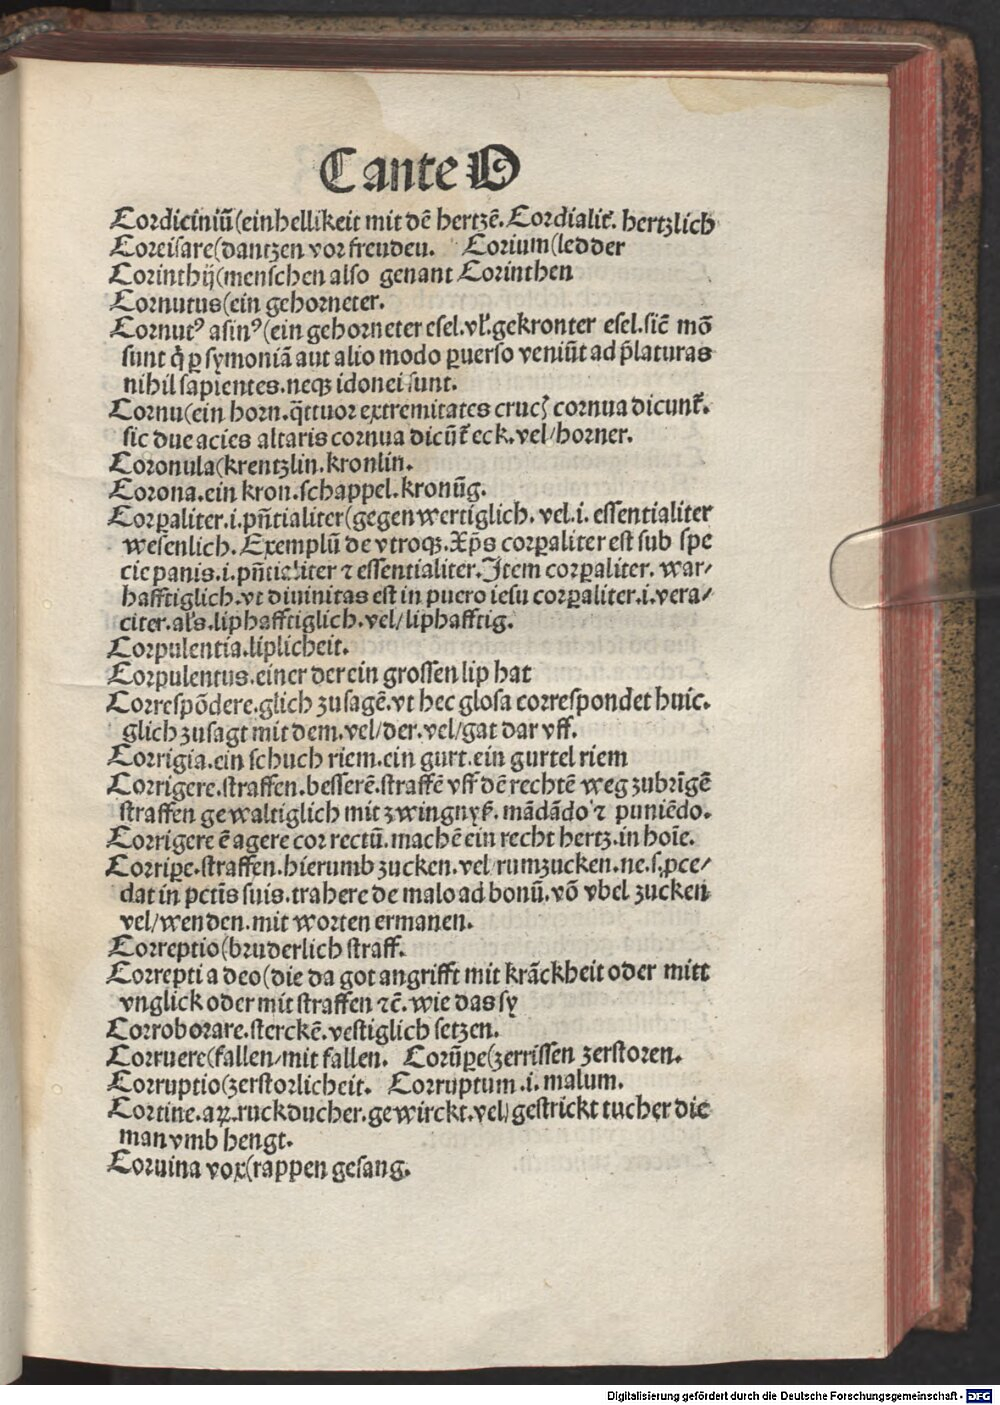 C ante O
Cordiciniū(einhellikeit mit dē hertzē. Cordialit᷑. hertzlich
Coreisare(dantzen vor freuden. Corium(ledder
Corinthij(menschen also genant Corinthen
Cornutus(ein gehorneter.
Cornutꝰ asinꝰ(ein gehorneter esel. vl᷑. gekronter esel. sic̄ mō
sunt q̇ ꝑ symoniā aut alio modo ꝑuerso veniūt ad p̄laturas
nihil sapientes. neqꝫ idonei sunt.
Cornu(ein horn. q̄ttuor extremitates crucꝭ cornua dicunt᷑.
sic due acies altaris cornua dicūt᷑ eck. vel/horner.
Coronula(krentzlin. kronlin.
Corona. ein kron. schappel. kronūg.
Corꝑaliter. i. pn̄tialiter(gegenwertiglich. vel. i. essentialiter
wesenlich. Exemplū de vtroqꝫ. Xp̄s corꝑaliter est sub spe
cie panis. i. pn̄tialiter ⁊ essentialiter. Item corꝑaliter. war/
hafftiglich. vt diuinitas est in puero iesu corꝑaliter. i. vera/
citer. al's. liphafftiglich. vel/liphafftig.
Corpulentia. liplicheit.
Corpulentus. einer der ein grossen lip hat
Correspōdere. glich zusagē. vt hec glosa correspondet huic.
glich zusagt mit dem. vel/der. vel/gat dar vff.
Corrigia. ein schuch riem. ein gurt. ein gurtel riem
Corrigere. straffen. besserē. straffē vff dē rechtē weg zubrīgē
straffen gewaltiglich mit zwingnyß. mādādo ⁊ puniēdo.
Corrigere ē agere cor rectū. machē ein recht hertz. in hoīe.
Corriꝑe. straffen. hierumb zucken. vel/rumzucken. ne. s. ꝓce/
dat in pctīs suis. trahere de malo ad bonū. vō vbel zucken
vel/wenden. mit worten ermanen.
Correptio(bruderlich straff.
Correpti a deo(die da got angrifft mit krāckheit oder mitt
vnglick oder mit straffen ⁊c̄. wie das sy
Corroborare. sterckē. vestiglich setzen.
Corruere(fallen/mit fallen. Corūꝑe(zerrissen zerstoren.
Corruptio(zerstorlicheit. Corruptum. i. malum.
Cortine. aꝝ. ruckducher. gewirckt. vel/gestrickt tucher die
man vmb hengt.
Coruina vox(rappen gesang.
Digitalisierung gefördert durch die Deutsche Forschungsgemeinschaft - DFG